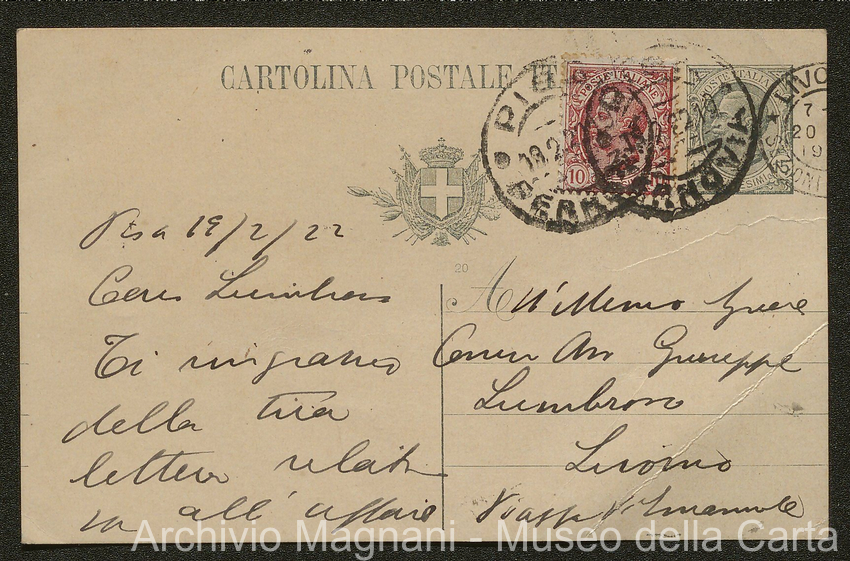 CARTOLINA POSTALE IT
POSTE ITALIANE
10
POSTE ITALIA
15 CENTESIMI 15
PISA
FERROVIA
LIVO
7
20
19
20
Pisa 19/2/22
Caro Lumbroso
Ti ringrazio
della tua
lettera relati
va all'affare
All'Illmo Signore
Comm Avv Giuseppe
Lumbroso
Livorno
Piazza V. Emanuele
Archivio Magnani - Museo della Carta